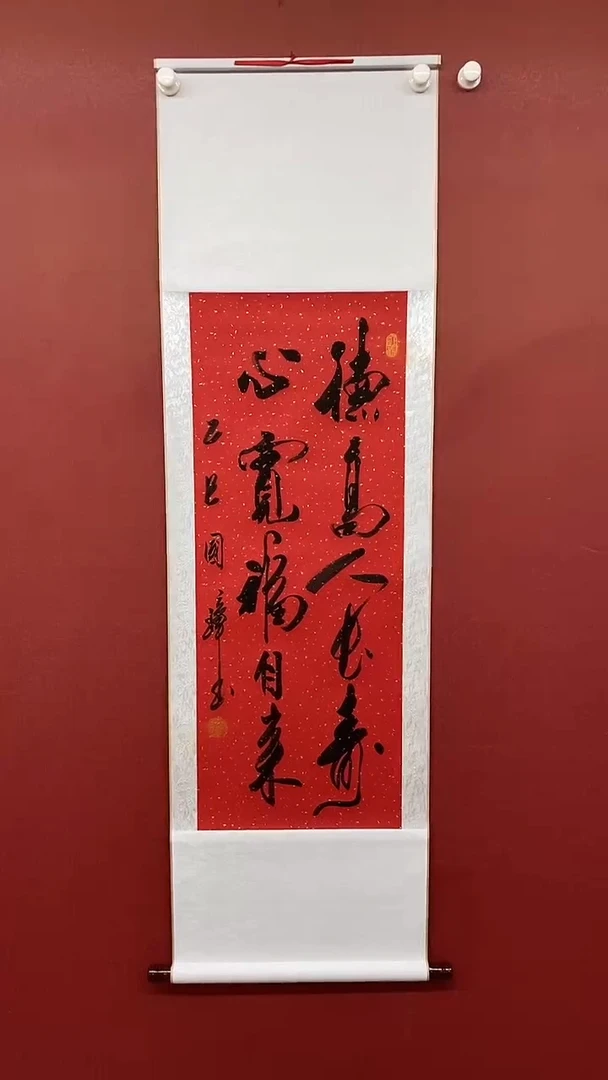 德高人长寿
心寬福自来
乙巳國璋书